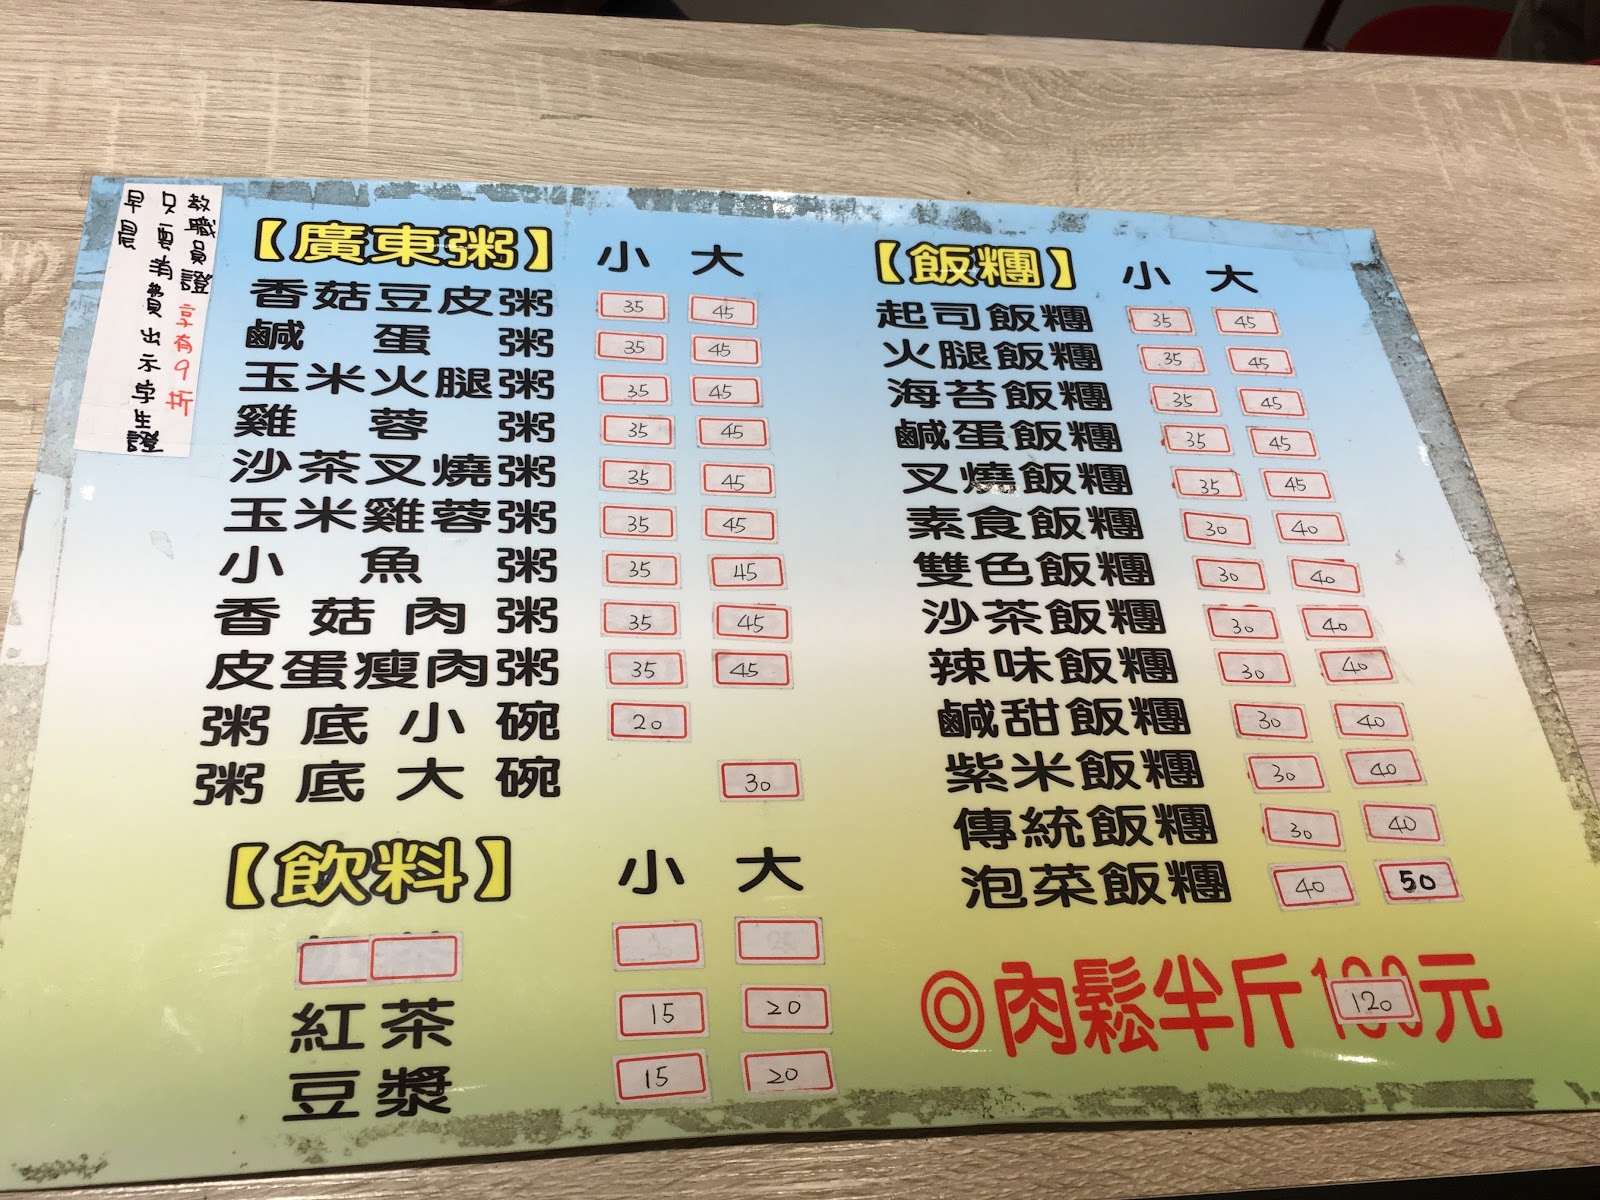 早晨
只要消費出示學生證
教職員證享有9折
【廣東粥】 小 大
香菇豆皮粥 35 45
鹹蛋粥 35 45
玉米火腿粥 35 45
雞蓉粥 35 45
沙茶叉燒粥 35 45
玉米雞蓉粥 35 45
小魚粥 35 45
香菇肉粥 35 45
皮蛋瘦肉粥 35 45
粥底小碗 20
粥底大碗 30
【飲料】 小 大
紅茶 15 20
豆漿 15 20
【飯糰】 小 大
起司飯糰 35 45
火腿飯糰 35 45
海苔飯糰 35 45
鹹蛋飯糰 35 45
叉燒飯糰 35 45
素食飯糰 30 40
雙色飯糰 30 40
沙茶飯糰 30 40
辣味飯糰 30 40
鹹甜飯糰 30 40
紫米飯糰 30 40
傳統飯糰 30 40
泡菜飯糰 40 50
◎肉鬆半斤120元